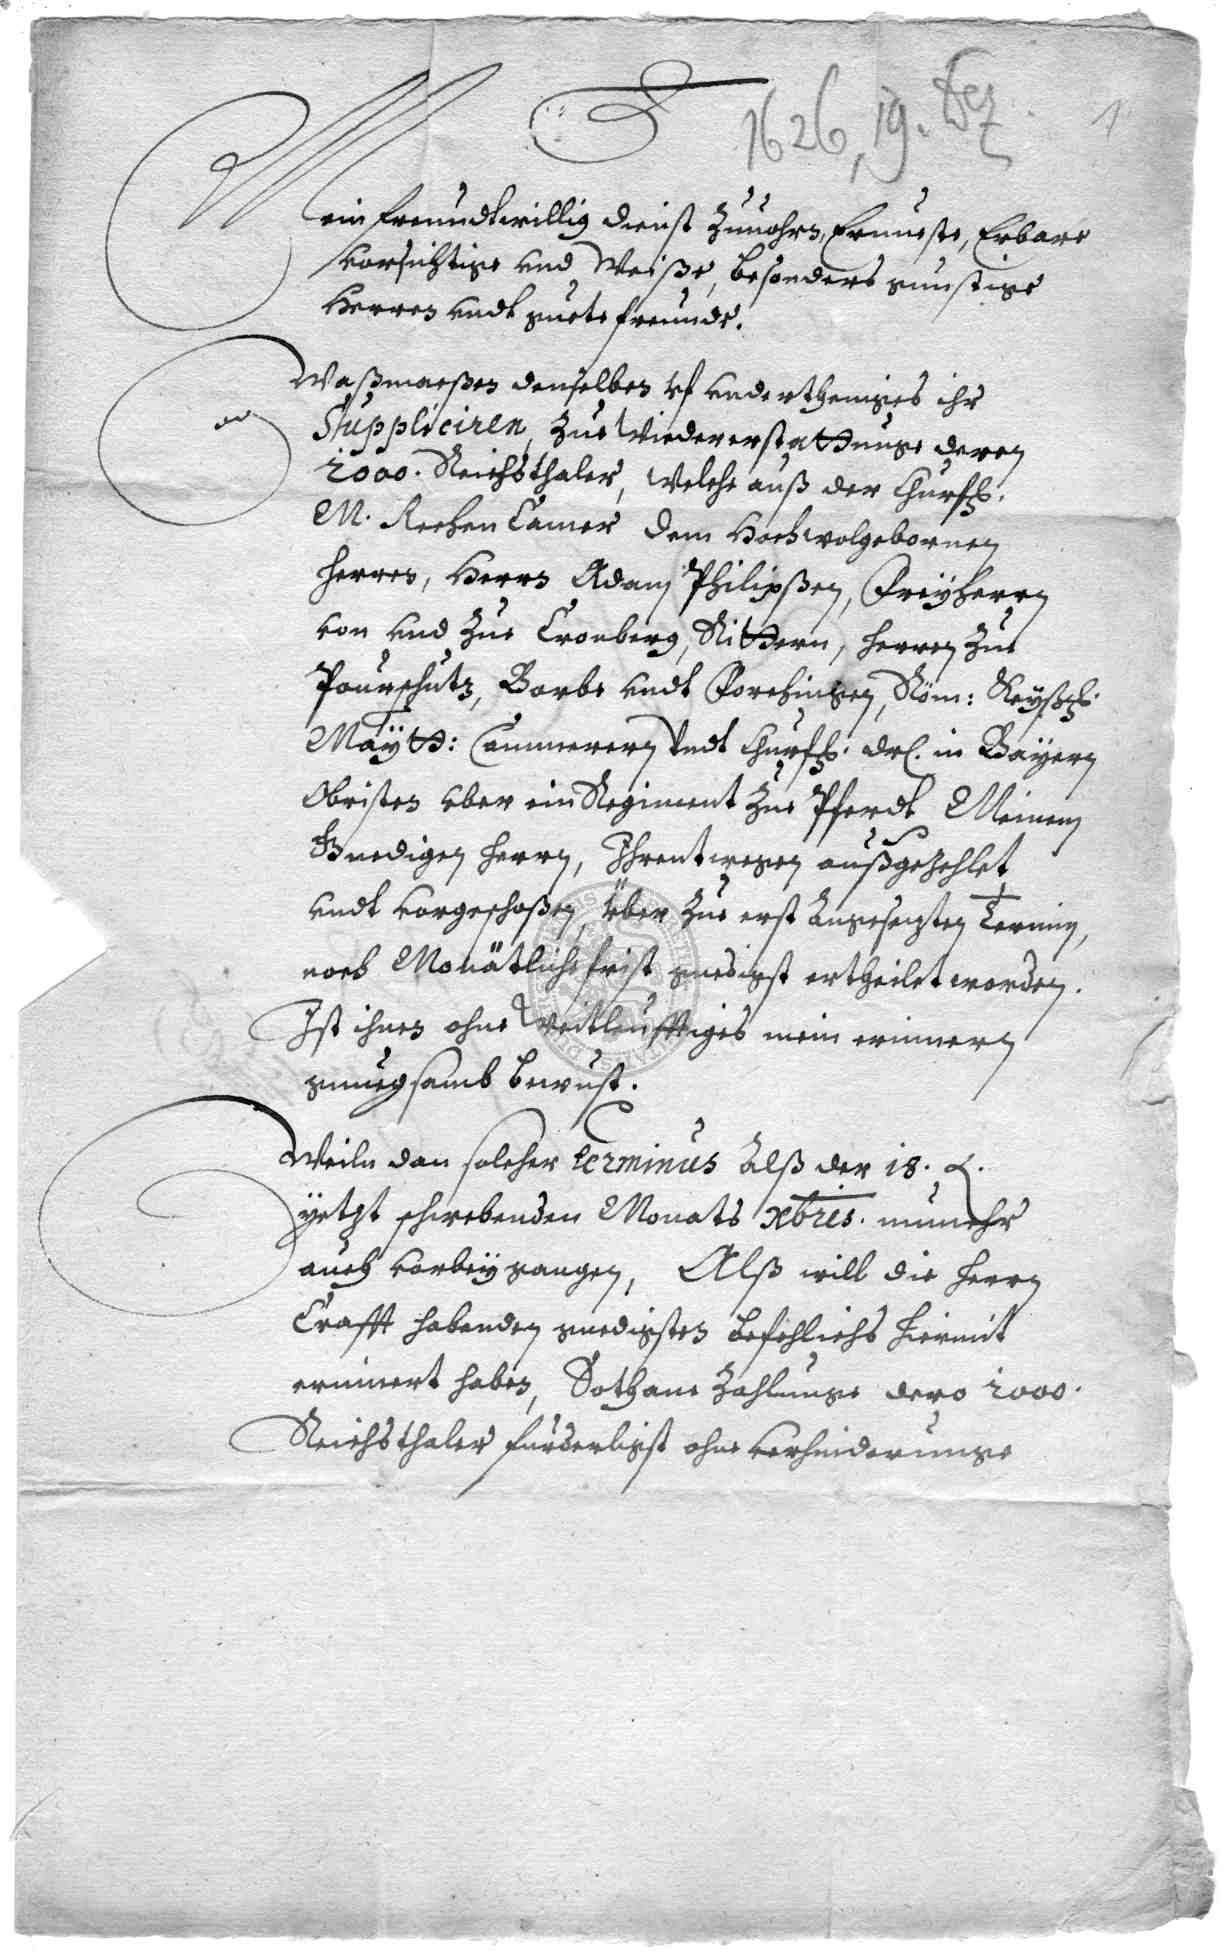 1626, 19. Dez
1
Mein freundtwillig dienst zuuohrn, Ernueste, Erbare
vorsichtige vnd Weiße, besonders gunstige
Herren vndt guete freunde.
Waßmaeßen denselben vf vndertheniges ihr
Suppliciren, zue Wiedererstattunge deren
2000. Reichsthaler, welche auß der Churfl.
M. Rechen Camer dem Hochwolgebornen
Herren, Herrn Adam Philipßen, Freyherrn
von vnd zue Cronberg, Rittern, Herren zue
Pourschütz, Borbe vndt Forchingen, Röm: Keyßl.
Maÿtt: Cammerern vndt Churfl. drl. in Bayern
Obristen vber ein Regiment zue Pferdt Meinem
Gnedigen Herrn, Ihrentwegen außgezehlet
vndt vorgeschoßen, über zue erst angesezten Termin,
noch Monätliche frist gnedigst ertheilet worden.
Ist ihnen ohne Weitleufftiges mein erinnern
gnuegsamb bewust.
Weiln dan solcher terminus Alß der 18. d.
yetzt schwebenden Monats xbris. nunmehr
auch vorbeÿgangen, Alß will die Herrn
Crafft habenden gnedigsten befehlichs hiermit
erinnert haben, Sothane Zahlunge dero 2000.
Reichsthaler fürderligst ohne verhinderunge